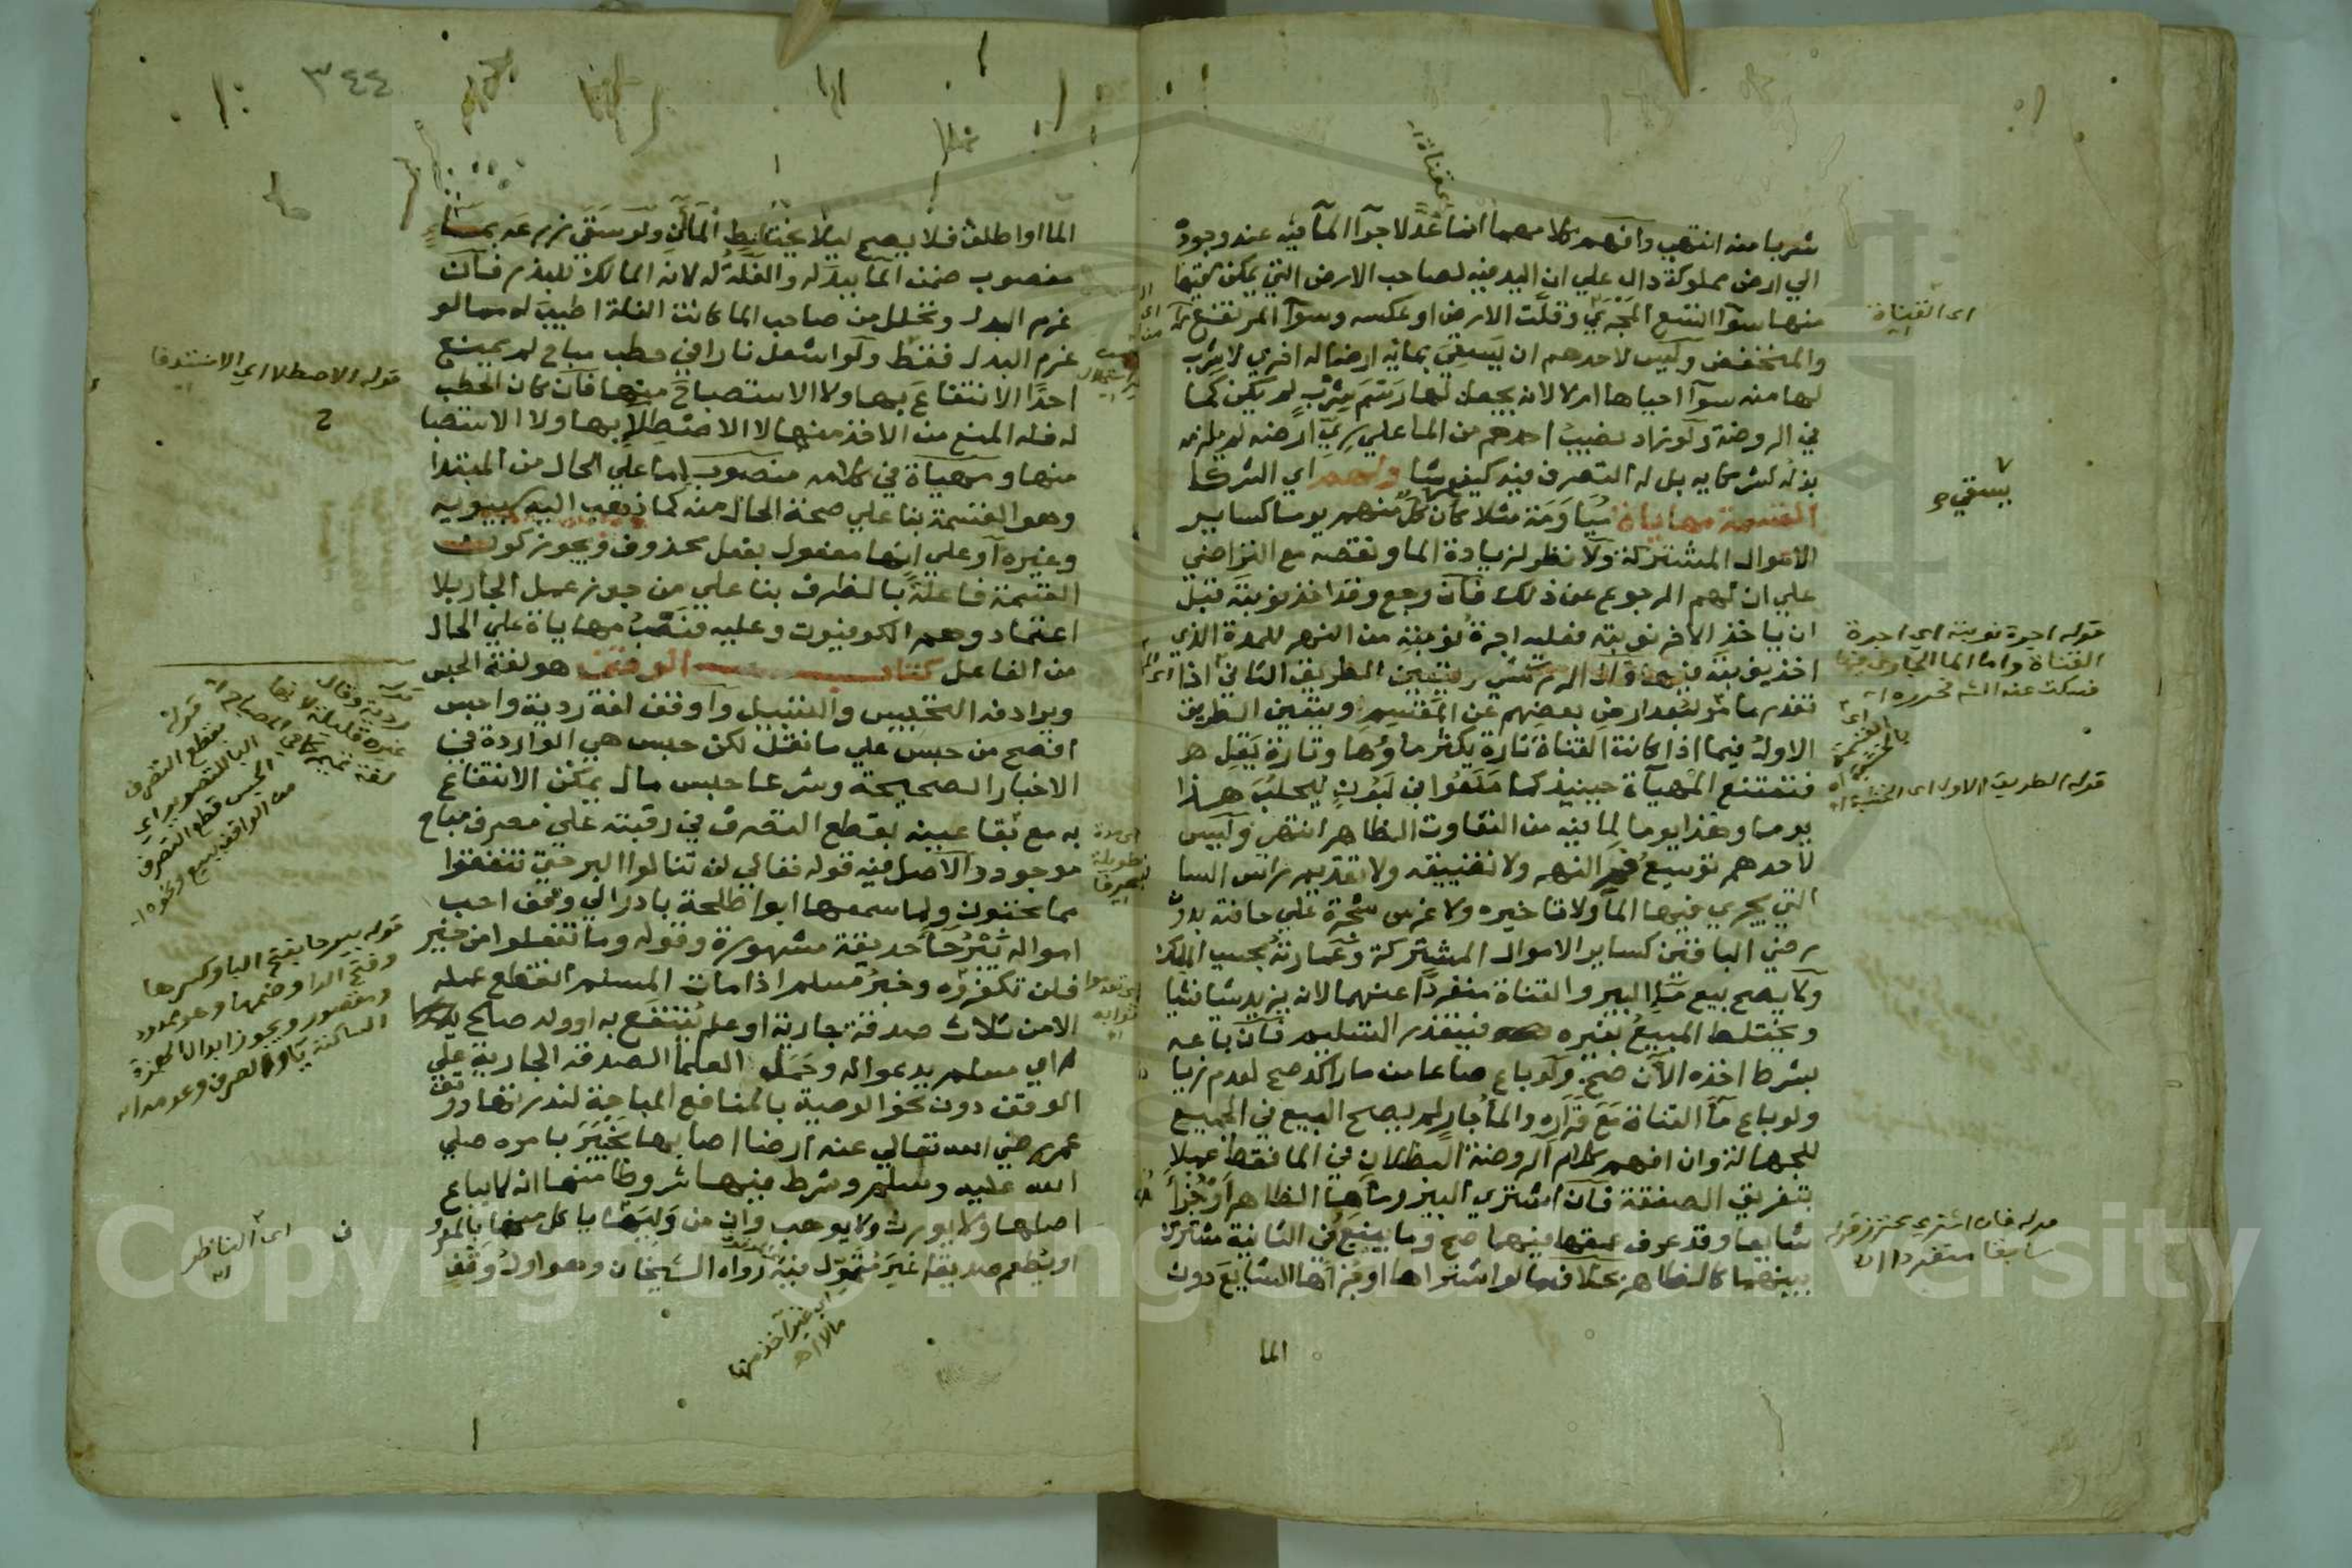 شربا منه انتهى وافهم كلامهما ان عدّ لاجراء الماء فيه عند وجوده
الي ارض مملوكة دال علي ان اليد فيه لصاحب الارض التي يمكن سقيها
منها سوآ اتسع المجرى وقلت الارض او عكسه وسوآ المرتفع
والمنخفض وليس لاحدهم ان يسقي بمائه ارضا له اخري لا شرب
لها منه سوآ احياها ام لا لانه يجعل لها رسم شرب لم يكن كما
في الروضة ولو زاد نصيب احدهم من الما علي ري ارضه لم يلزمه
بذله لشركايه بل له التصرف فيه كيف شا ولهم اي الشركا
القسمة مهاياة مياومة مثلا كان كل منهم يوما كساير
الاموال المشتركة ولا نظر لزيادة الما ونقصه مع التراضي
علي ان لهم الرجوع عن ذلك فان رجع وقد اخذ نوبته قبل
ان ياخذ الاخر نوبته فعليه اجرة نوبته من النهر للمدة الذي
اخذ نوبته فيها وقال الزركشي ويتعين الطريق الثاني اذا
تعذر ما مر لبعد ارض بعضهم عن المقسم ويتعين الطريق
الاول فيما اذا كانت القناة تارة يكثر ماؤها وتارة يقل
فتمتنع المهيأة حينيذ كما منعوا في لبون ليحلب هذا
يوما وهذا يوما لما فيه من التفاوت الظاهر انتهى وليس
لاحدهم توسيع فم النهر ولا تضييقه ولا تقديم راس الساقية
التي يجري فيها الماء ولا تاخيره ولا غرس شجرة علي حافته بدون
رضي الباقين كساير الاموال المشتركة وعمارته بحسب الملك
ولا يصح بيع ماء البير والقناة منفردا عنهما لانه يزيد شيا فشيا
ويختلط المبيع بغيره فيتعذر التسليم فان باعه
بشرط اخذه الآن صح ولو باع صاعا من ما راكد صح لعدم زيا
ولو باع ماء القناة مع قراره والماء جار لم يصح البيع في الجميع
للجهالة وان افهم كلام الروضة البطلان في الما فقط عملا
بتفريق الصفقة فان اشتري البير وماءها الظاهر او جزأ
شايعا وقد عرف عمقها فيهما صح وما ينبع في الثانية مشترك
بينهما كالظاهر بخلاف ما لو اشتراها او جزأها الشايع دون
الما
اى القناة
يسقي
قوله اجرة نوبته اي اجرة
القناة واما الما الجاري فيها
فسكت عنه الش فحرره اهـ
قوله الطريق الاول اى الخشبة اهـ
قوله فان اشتري محترز قوله
سابقا منفردا اهـ
٣٤٤
الما او اطلق فلا يصح ليلا يختلط المآن ولو سقى زرعه بماء
مغصوب ضمن الماء ببدله والغلة له لانه المالك للبذر فان
غرم البدل وتحلل من صاحب الما كانت الغلة اطيب له مما لو
غرم البدل فقط ولو اشعل نارا في حطب مباح لم يمنع
احدا الانتفاع بها ولا الاستصباح منها فان كان الحطب
له فله المنع من الاخذ منها لا الاصطلا بها ولا الاستصبا
منها ومهياة في كلامه منصوب اما علي الحال من المبتدا
وهو القسمة بنا علي صحة الحال منه كما ذهب اليه سيبويه
وغيره او علي انها مفعول بفعل محذوف ويجوز كون
القسمة فاعلة بالظرف بنا علي من جوز عمل الجار بلا
اعتماد وهم الكوفيون وعليه فنصب مهاياة علي الحال
من الفاعل كتاب الوقف هو لغة الحبس
ويرادفه التحبيس والتسبيل واوقف لغة ردية واحبس
افصح من حبس علي ما نقل لكن حبس هي الواردة في
الاخبار الصحيحة وشرعا حبس مال يمكن الانتفاع
به مع بقا عينه بقطع التصرف في رقبته علي مصرف مباح
موجود والاصل فيه قوله تعالي لن تنالوا البر حتى تنفقوا
مما تحبون ولما سمعها ابوا طلحة بادر الي وقف احب
امواله بيرحا حديقة مشهورة وقوله وما تفعلوا من خير
فلن تكفروه وخبر مسلم اذا مات المسلم انقطع عمله
الا من ثلاث صدقة جارية او علم ينتفع به او ولد صالح
اي مسلم يدعوا له وحمل العلما الصدقة الجارية علي
الوقف دون نحو الوصية بالمنافع المباحة لندرتها ووقف
عمر رضي الله تعالي عنه ارضا اصابها بخيبر بامره صلي
الله عليه وسلم وشرط فيها شروطا منها انه لا يباع
اصلها ولا يورث ولا يوهب وان من وليها ياكل منها بالمعروف
او يطعم صديقا غير متمول فيه رواه الشيخان وهو اول وقف
قوله الاصطلا اي الاستدفا
قوله
بقطع التصرف
البا للتصوير اي
الحبس قطع التصرف
من الواقف ببيع ونحوه اهـ
قوله بيرحا بفتح البا وكسرها
وفتح الرا وضمها وهو ممدود
ومقصور ويجوز ابدال الهمزة
الساكنة ياء والصرف وعدمه اهـ
اى الناظر
اي غير آخذ منها
مالا اهـ